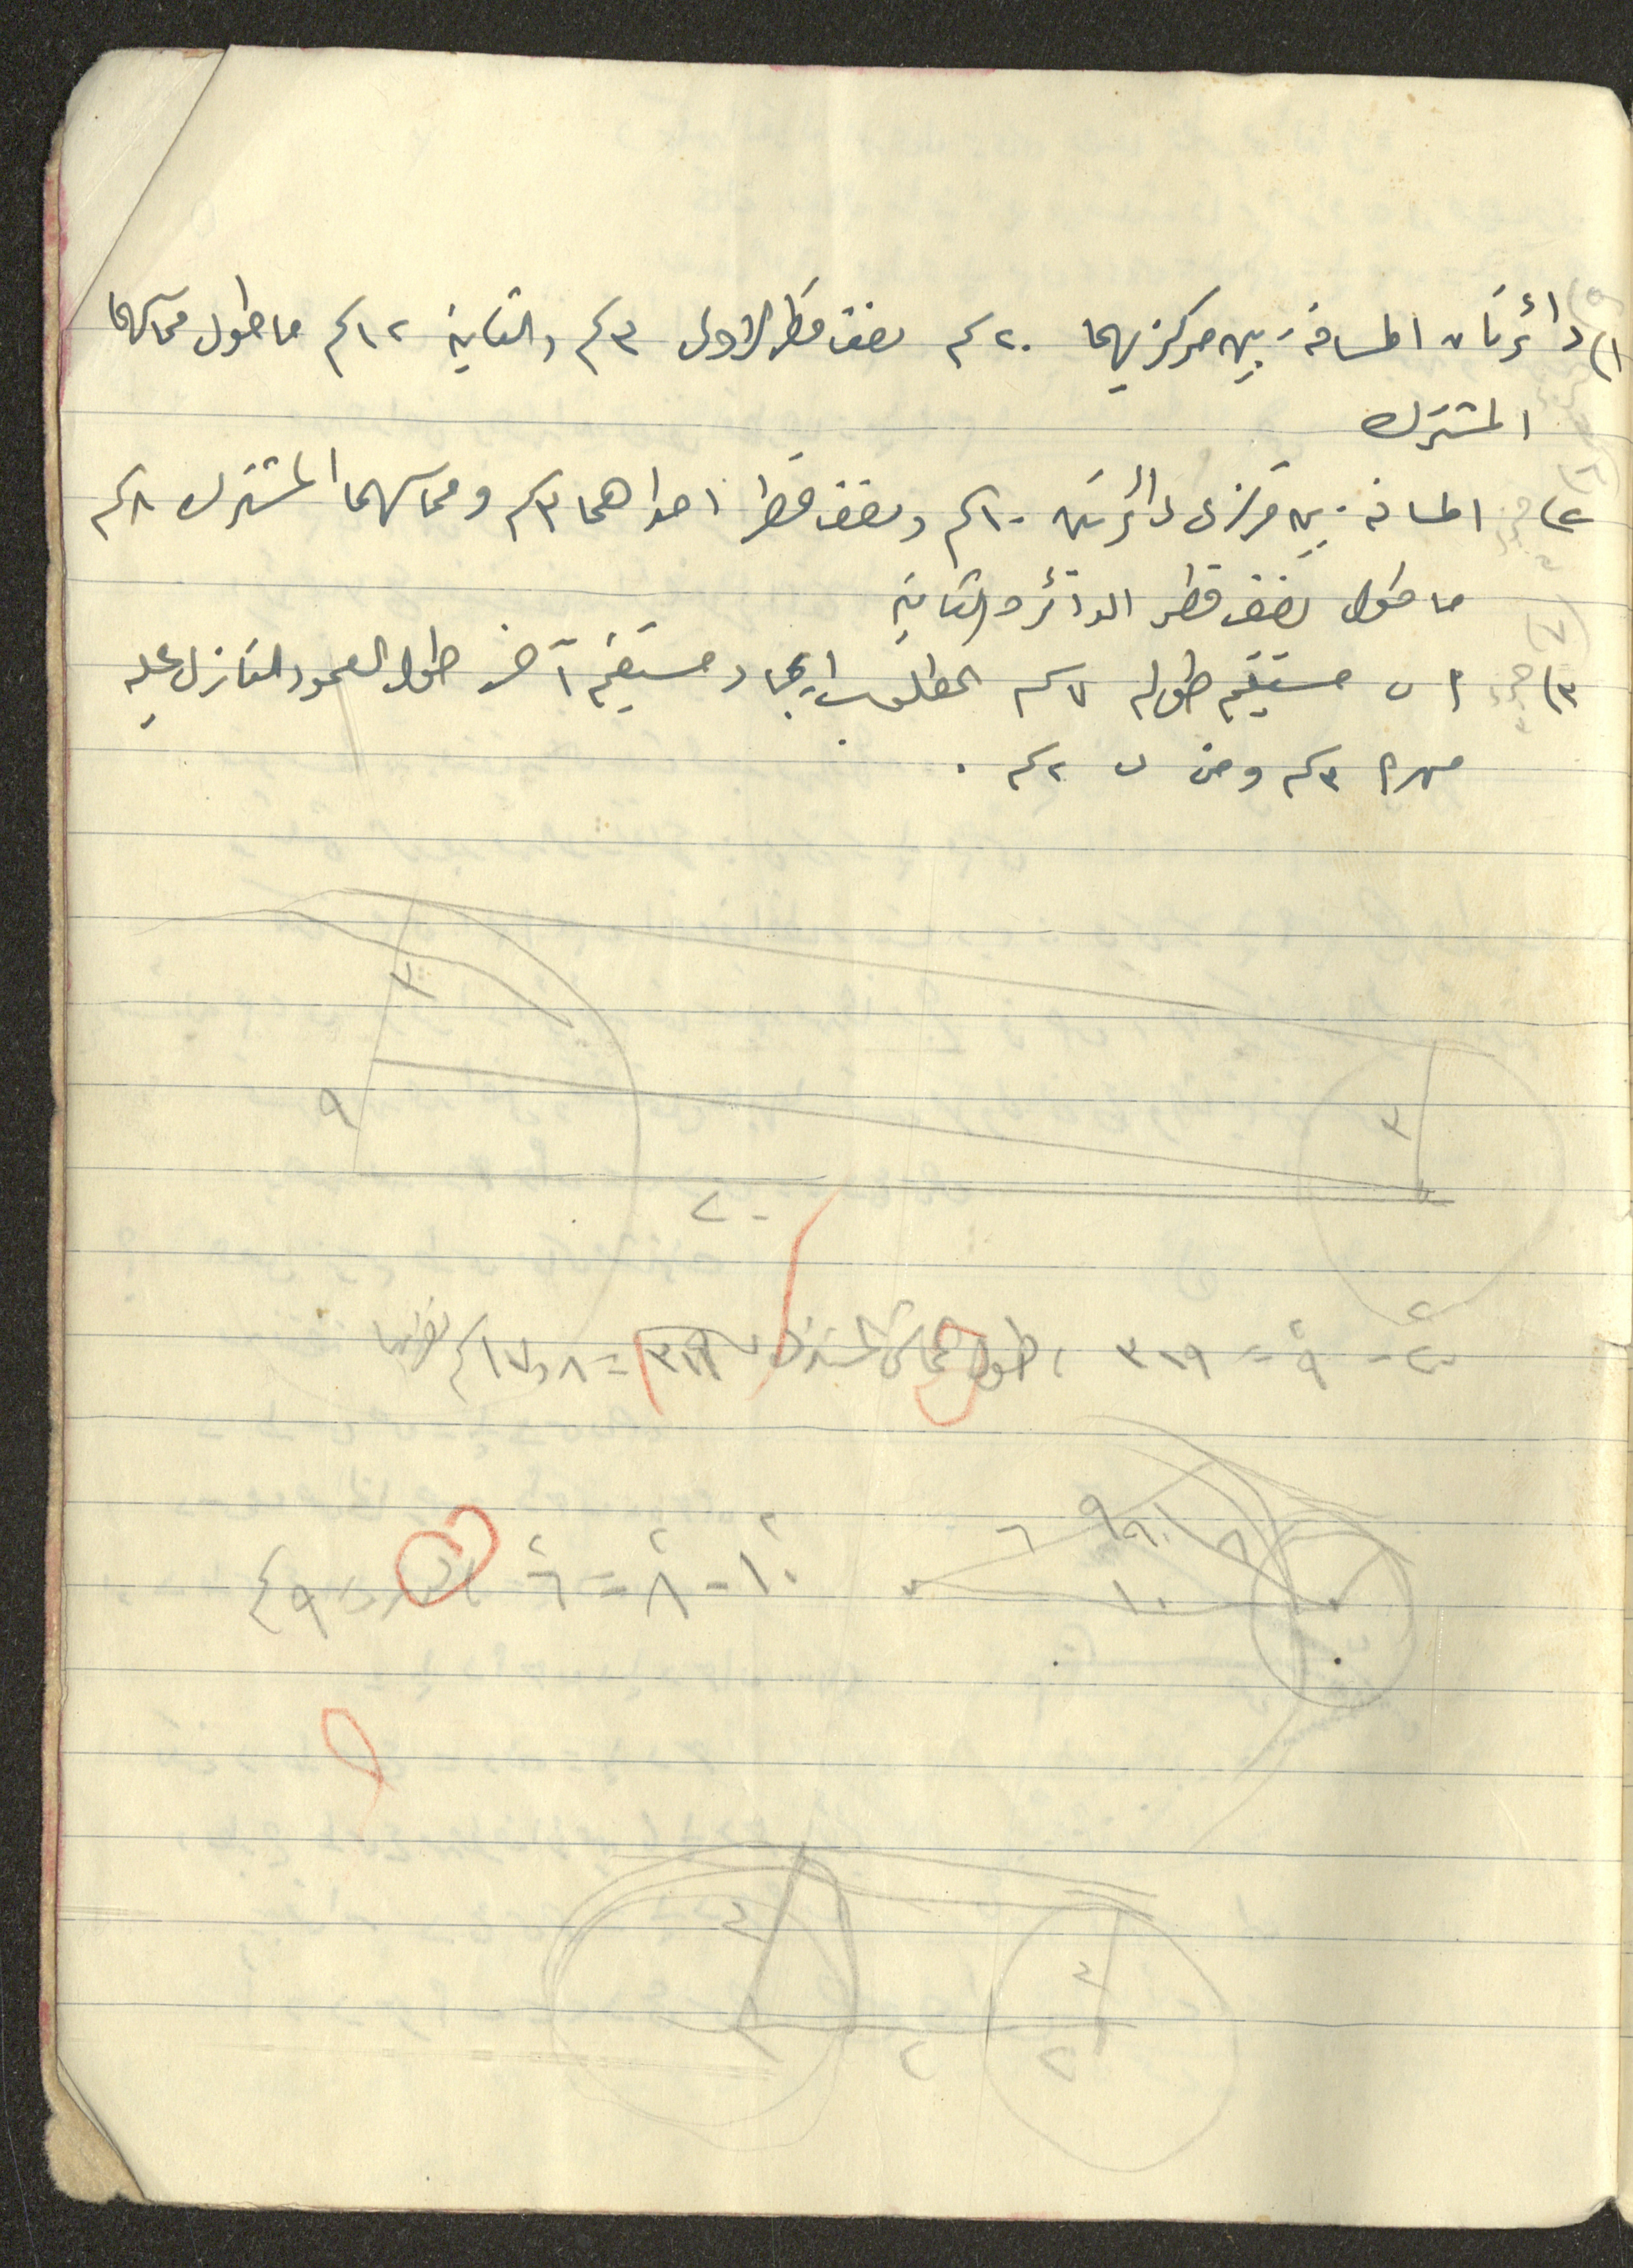 ١) دائرتان المسافة بين مركزيهما ٢٠ سم نصف قطر الاولى ٣ سم والثانية ١٢ سم ما طول مماسهما
المشترك
٢) المسافة بين مركزي دائرتين ١٠ سم ونصف قطر احداهما ٣ سم ومماسهما المشترك ٨ سم
ما طول نصف قطر الدائرة الثانية
٣) م ں مستقيم طوله ٧ سم المطلوب ايجاد مستقيم آخر طول العمود النازل عليه
من م ٣ سم ومن ں ٢ سم .
٣
٩
٣
٢٠
٢٠٢ - ٩٢ = ٣١٩ ، طول المماس المشترك ٣١٩ = ١٧,٨ سم تقريبا
٦
٩٠
٨
١٠
١٠٢ - ٨٢ = ٦٢ ٩ سم
٤
٤
٢
٢